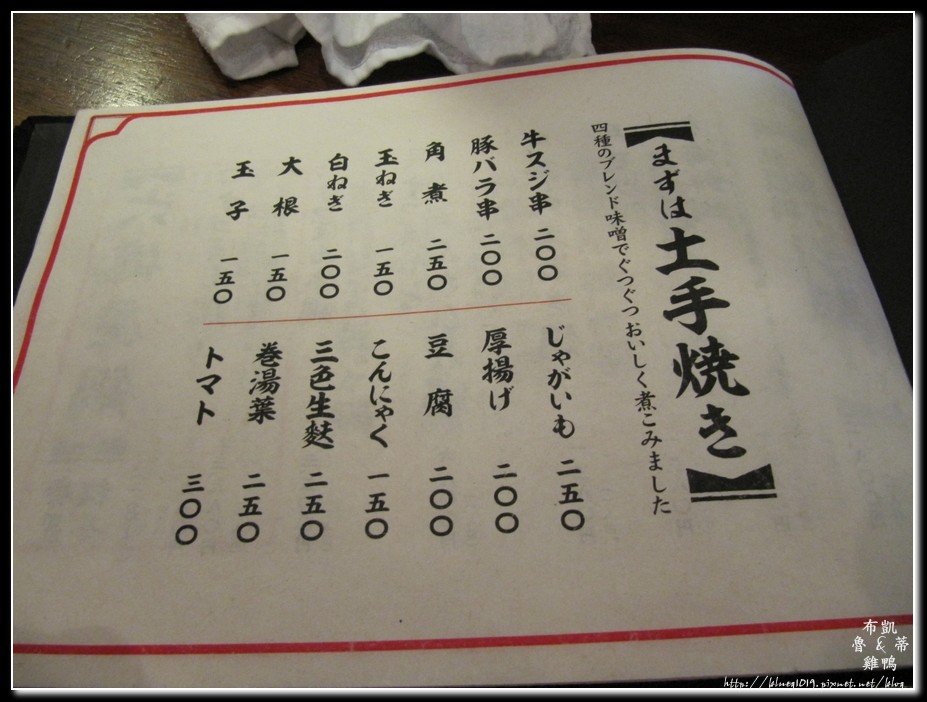 【まずは土手焼き】
四種のブレンド味噌でぐつぐつおいしく煮こみました
牛スジ串 二〇〇
豚バラ串 二〇〇
角煮 二五〇
玉ねぎ 一五〇
白ねぎ 二〇〇
大根 一五〇
玉子 一五〇
じゃがいも 二五〇
厚揚げ 二〇〇
豆腐 二〇〇
こんにゃく 一五〇
三色生麩 二五〇
巻湯葉 二五〇
トマト 三〇〇
布凱
魯&蒂
雞鴨
http://bluea1019.pixnet.net/blog